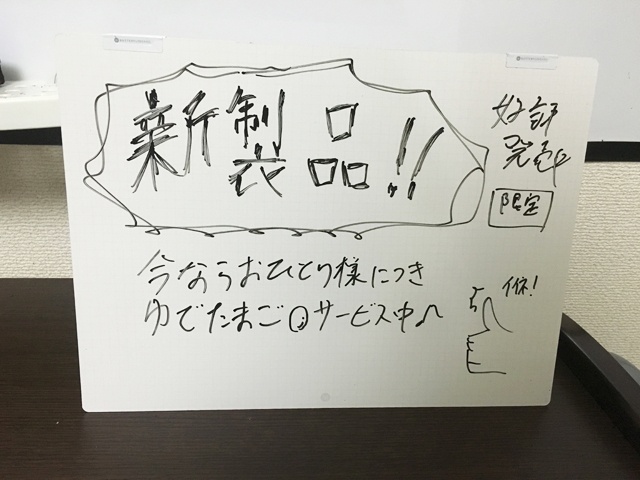 新製品!!
好評
発売中
限定
今ならおひとり様につき
ゆでたまご○サービス中♪